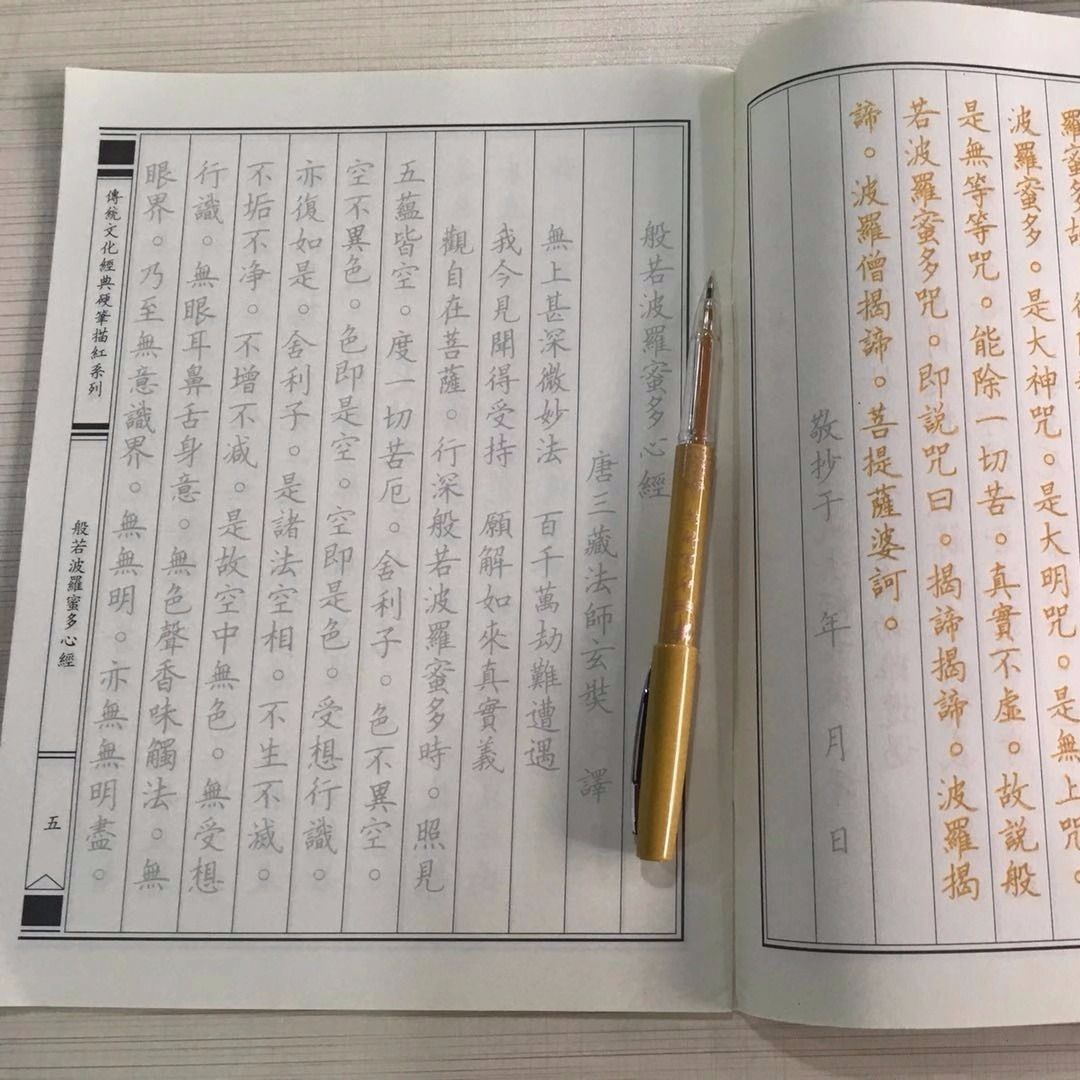 羅蜜多故
波羅蜜多。是大神咒。是大明咒。是無上咒。
是無等等咒。能除一切苦。真實不虛。故說般
若波羅蜜多咒。即說咒曰。揭諦揭諦。波羅揭
諦。波羅僧揭諦。菩提薩婆訶。
敬抄于 年 月 日
般若波羅蜜多心經
唐三藏法師玄奘 譯
無上甚深微妙法 百千萬劫難遭遇
我今見聞得受持 願解如來真實義
觀自在菩薩。行深般若波羅蜜多時。照見
五蘊皆空。度一切苦厄。舍利子。色不異空。
空不異色。色即是空。空即是色。受想行識。
亦復如是。舍利子。是諸法空相。不生不滅。
不垢不净。不增不减。是故空中無色。無受想
行識。無眼耳鼻舌身意。無色聲香味觸法。無
眼界。乃至無意識界。無無明。亦無無明盡。
傳統文化經典硬筆描紅系列
般若波羅蜜多心經
五